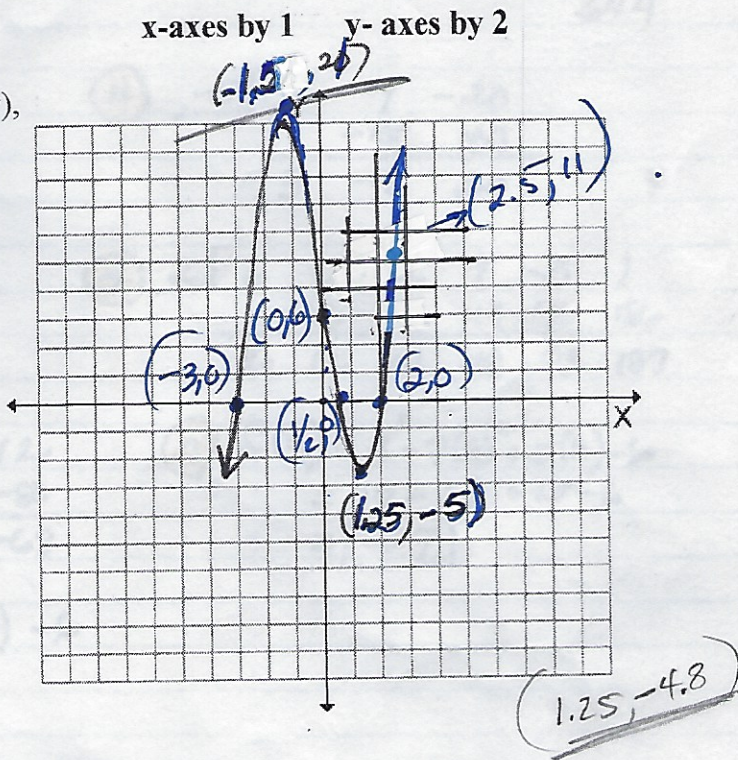 x-axes by 1 y- axes by 2
),
(2.5, 11)
(0,6)
(-3,0)
(2,0)
(1/2, 0)
X
(1.25, -5)
(1.25, -4.8)